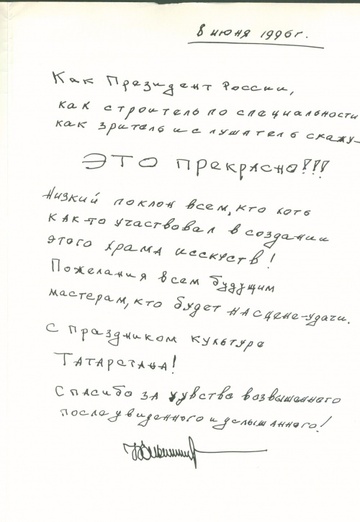 8 июня 1996 г.
Как Президент России,
как строитель по специальности
как зритель и слушатель скажу –
ЭТО прекрасно!!!
Низкий поклон всем, кто хоть
как-то участвовал в создании
этого храма исскуств!
Пожелания всем будущим
мастерам, кто будет на сцене – удачи.
С праздником культура
Татарстана!
Спасибо за чувство возвышенного
после увиденного и услышанного!